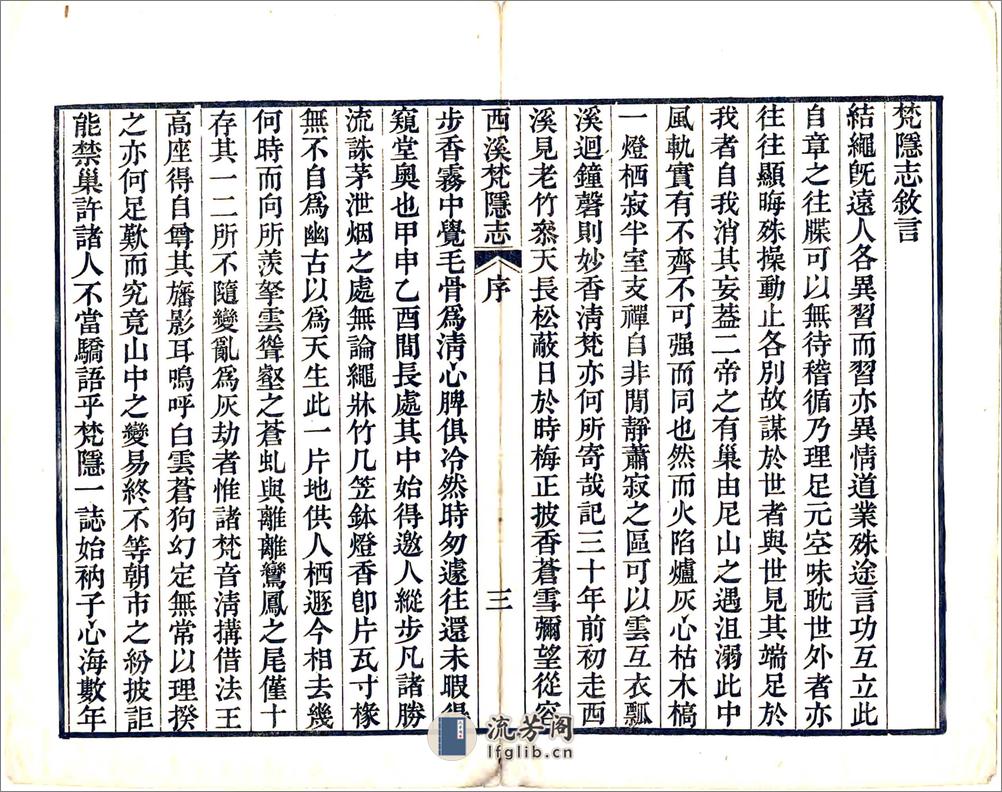 梵隱志敘言
結繩旣遠人各異習而習亦異情道業殊途言功互立此
自章之往牒可以無待稽循乃理足元空味耽世外者亦
往往顯晦殊操動止各別故謀於世者與世見其端足於
我者自我消其妄葢二帝之有巢由尼山之遇沮溺此中
風軌實有不齊不可强而同也然而火陷爐灰心枯木槁
一燈栖寂半室支禪自非閒靜蕭寂之區可以雲互衣瓢
溪迴鐘磬則妙香清梵亦何所寄哉記三十年前初走西
溪見老竹叅天長松蔽日於時梅正披香蒼雪彌望從容
西溪梵隱志
序
三
步香霧中覺毛骨爲清心脾俱冷然時匆遽往還未暇得
窺堂奥也甲申乙酉間長處其中始得邀人縱步凡諸勝
流誅茅泄烟之處無論繩牀竹几笠鉢燈香卽片瓦寸椽
無不自爲幽古以爲天生此一片地供人栖遯今相去幾
何時而向所羨拏雲聳壑之蒼虬與離離鸞鳳之尾僅十
存其一二所不隨變亂爲灰劫者惟諸梵音淸搆借法王
高座得自尊其旛影耳嗚呼白雲蒼狗幻定無常以理揆
之亦何足歎而究竟山中之變易終不等朝市之紛披詎
能禁巢許諸人不當驕語乎梵隱一誌始衲子心海數年
流芳阁
lfglib.cn